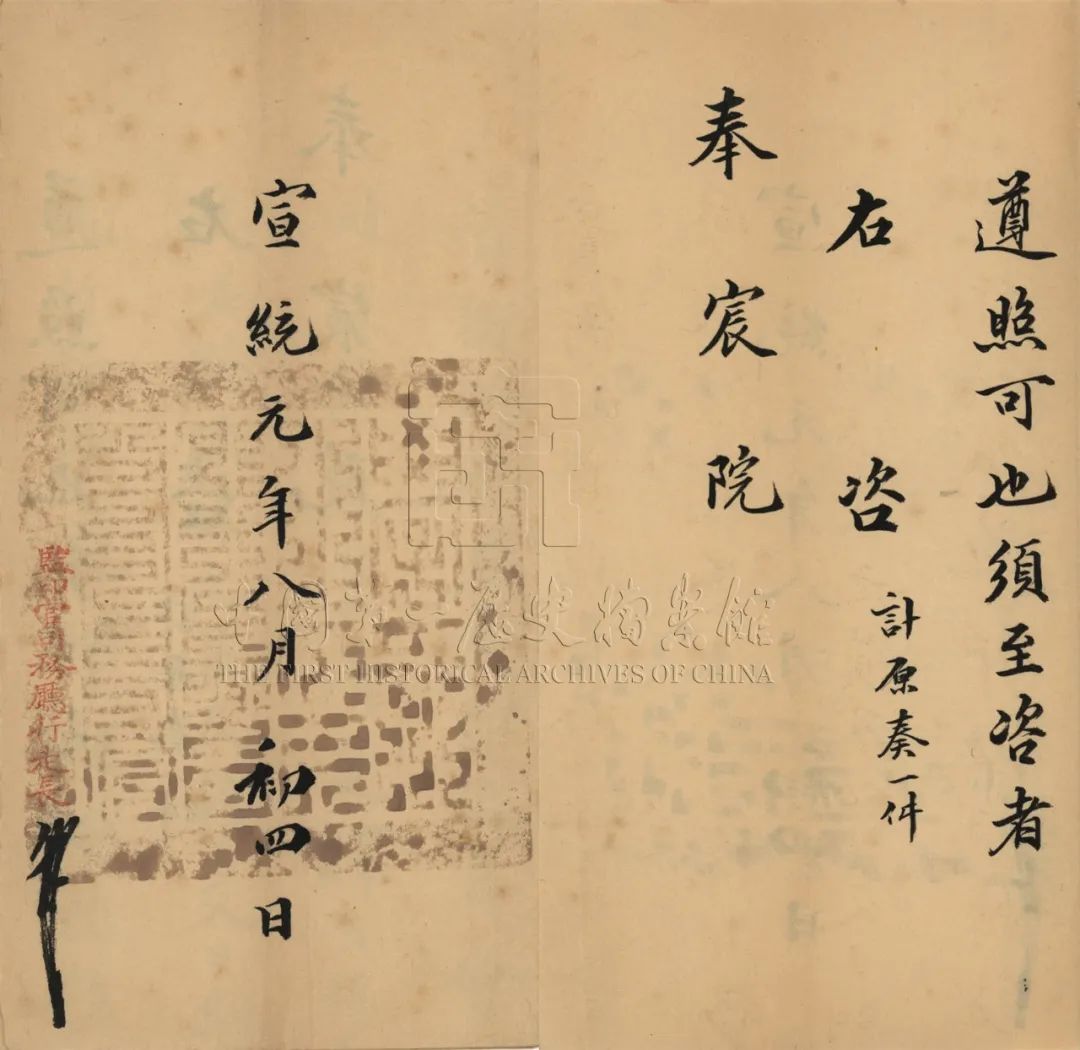 遵照可也須至咨者
右咨 計原奏一件
奉宸院
宣統元年八月初四日
監印官司務廳行走長
中國第一歷史檔案館
THE FIRST HISTORICAL ARCHIVES OF CHINA